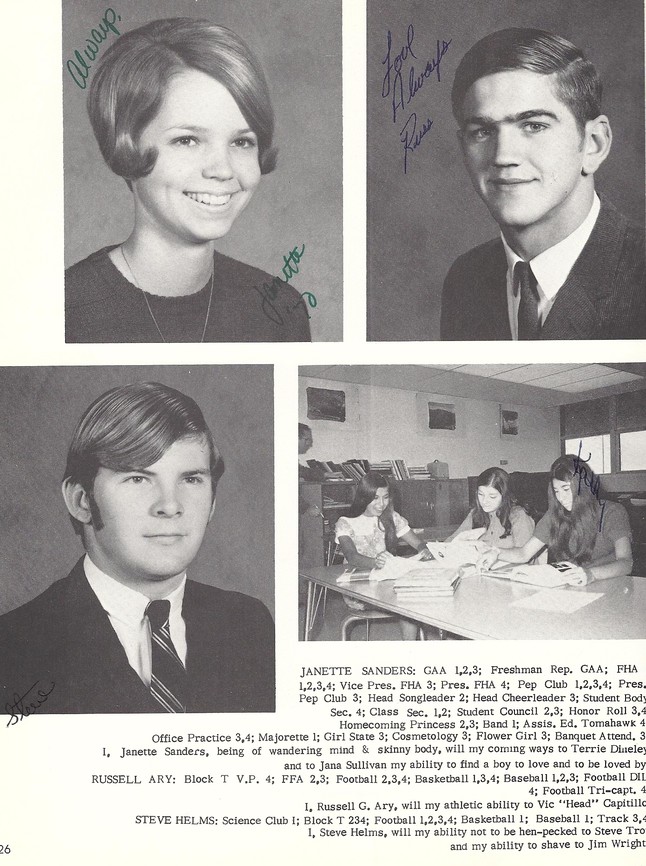 Always,
Janette
Love
Always
Russ
Steve
JANETTE SANDERS: GAA 1,2,3; Freshman Rep. GAA; FHA
1,2,3,4; Vice Pres. FHA 3; Pres. FHA 4; Pep Club 1,2,3,4; Pres.
Pep Club 3; Head Songleader 2; Head Cheerleader 3; Student Body
Sec. 4; Class Sec. 1,2; Student Council 2,3; Honor Roll 3,4
Homecoming Princess 2,3; Band 1; Assis. Ed. Tomahawk 4
Office Practice 3,4; Majorette 1; Girl State 3; Cosmetology 3; Flower Girl 3; Banquet Attend. 3
I, Janette Sanders, being of wandering mind & skinny body, will my coming ways to Terrie
and to Jana Sullivan my ability to find a boy to love and to be loved by
RUSSELL ARY: Block T V.P. 4; FFA 2,3; Football 2,3,4; Basketball 1,3,4; Baseball 1,2,3; Football DIL
4; Football Tri-capt. 4
I, Russell G. Ary, will my athletic ability to Vic "Head" Capitillo
STEVE HELMS: Science Club 1; Block T 234; Football 1,2,3,4; Basketball 1; Baseball 1; Track 3,4
I, Steve Helms, will my ability not to be hen-pecked to Steve Tro
and my ability to shave to Jim Wright
26